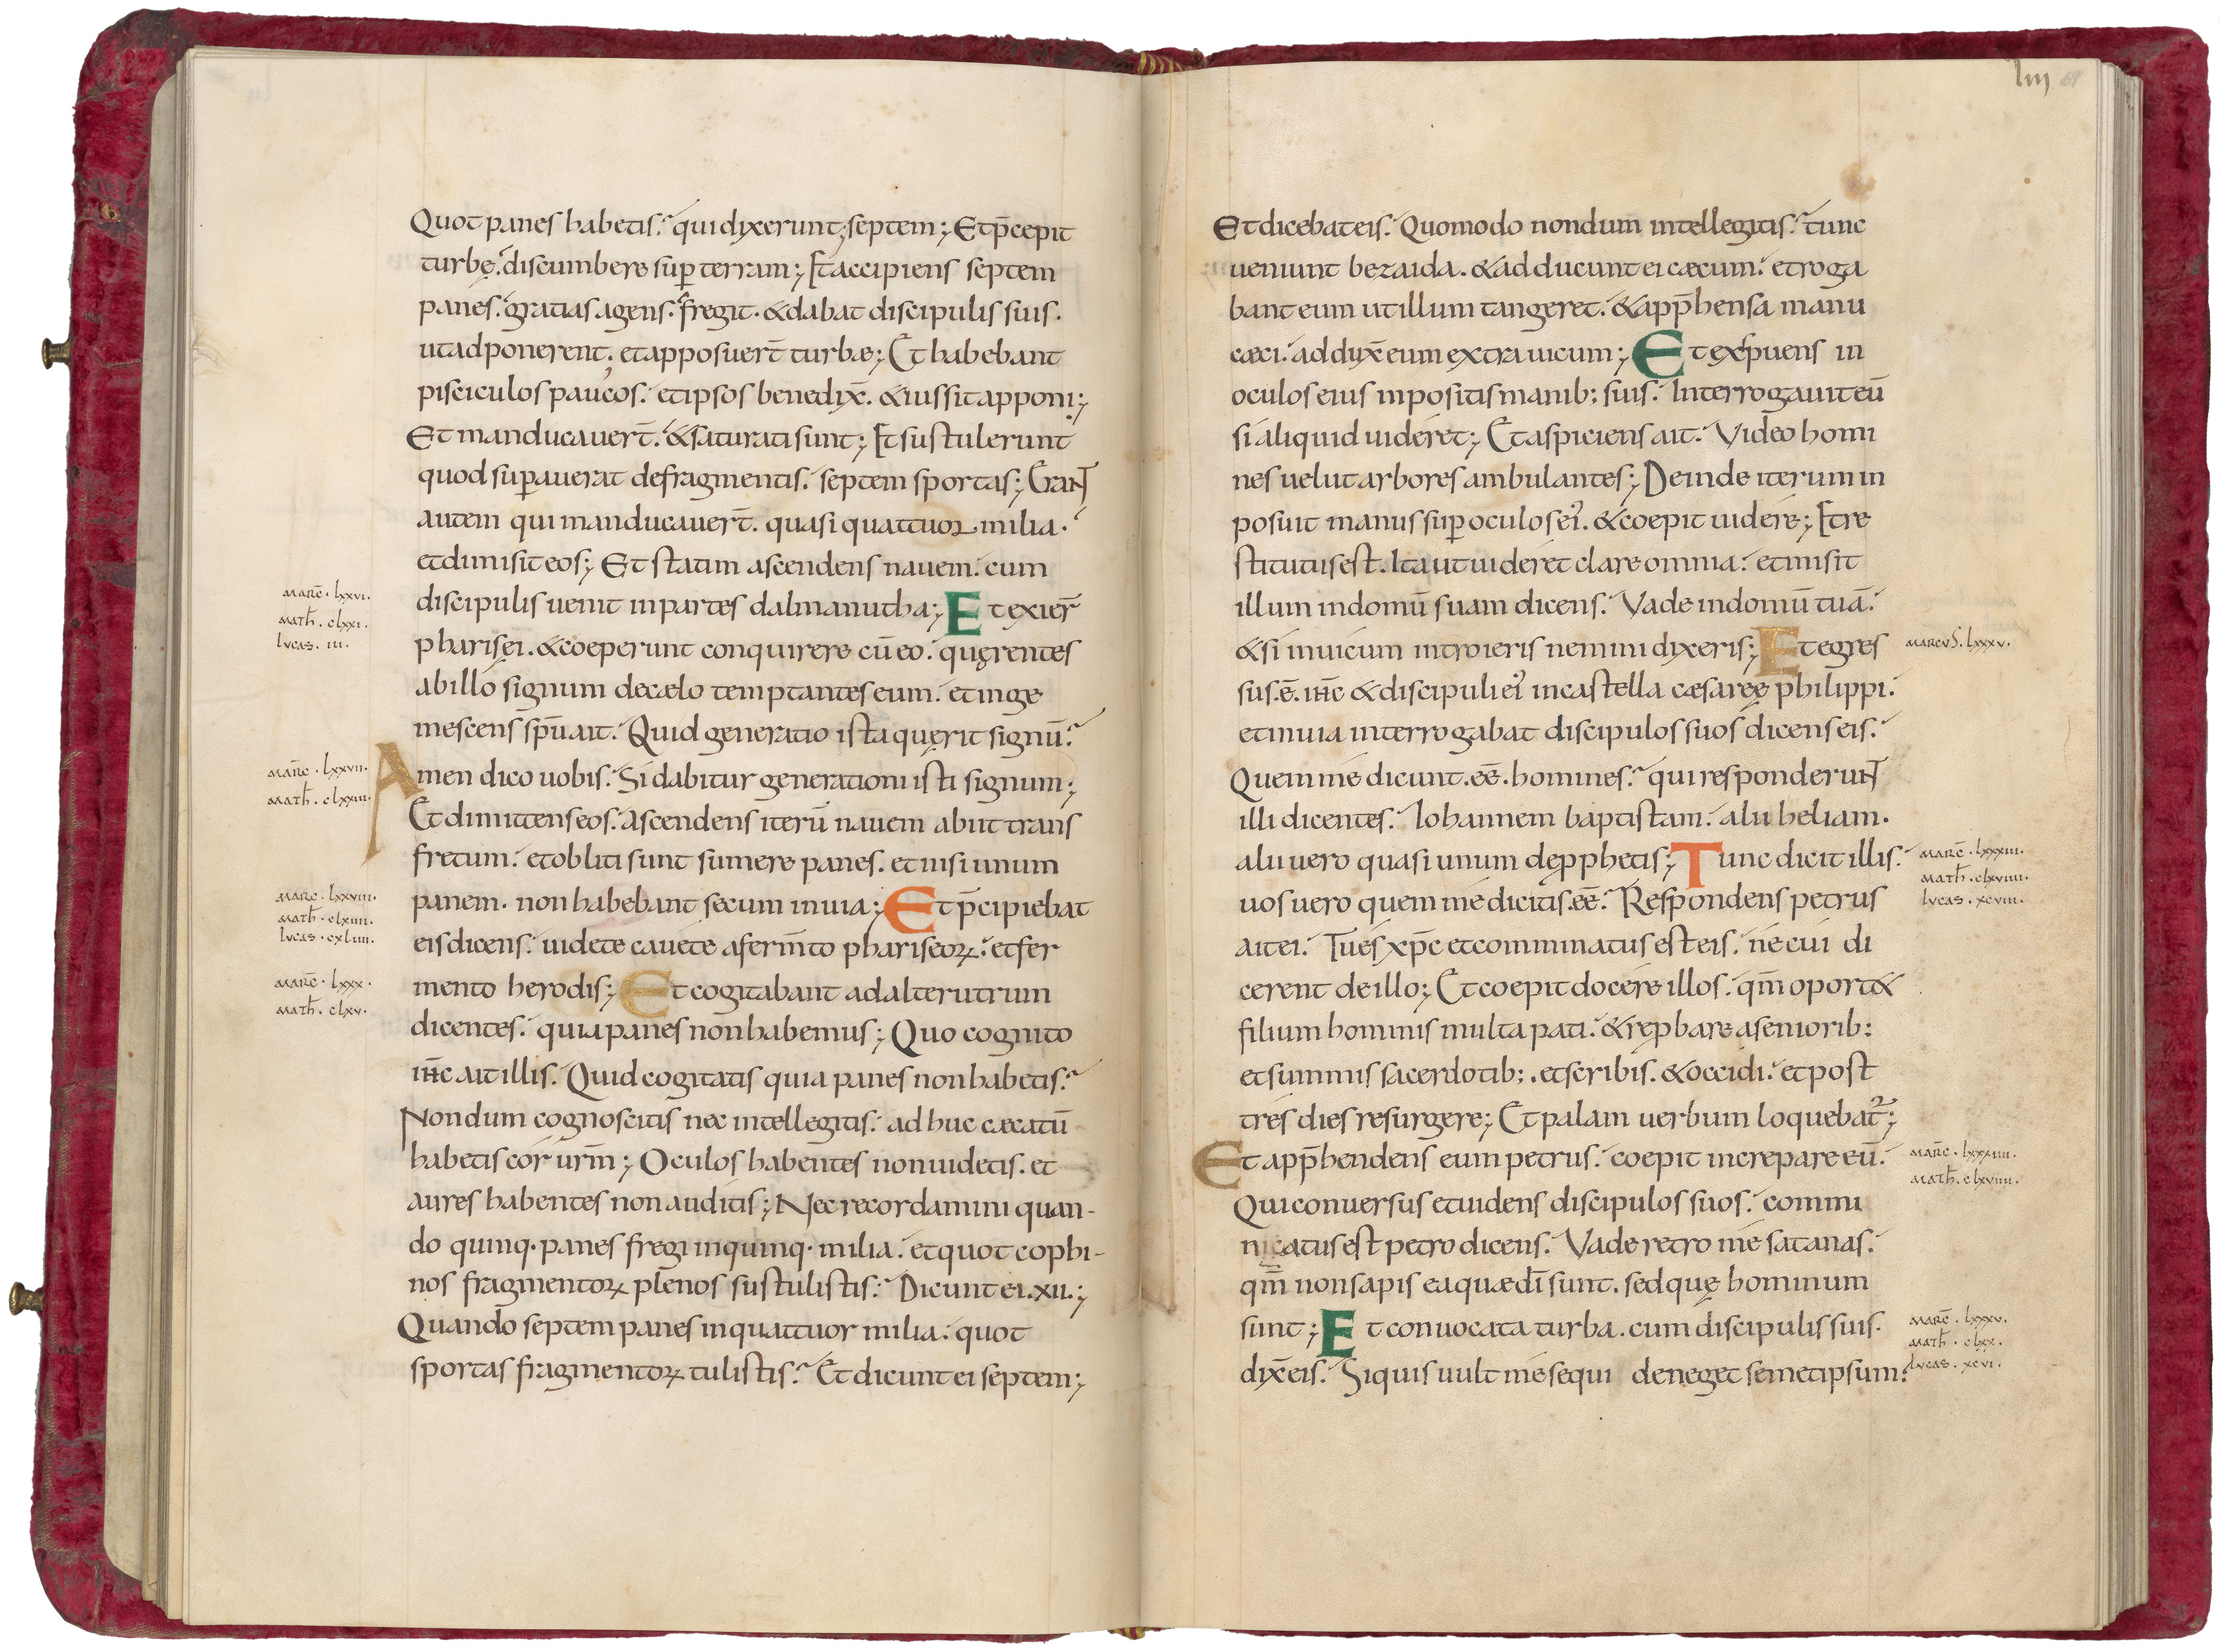 Quot panes habetis. qui dixerunt; septem; Et p̄cepit
turbę. discumbere sup̱ terram; Et accipiens septem
panes. gratias agens. fregit. & dabat discipulis suis.
ut adponerent. et apposuer̄t turbæ; Et habebant
pisciculos paucos. et ipsos benedix̄. & iussit apponi;
Et manducauer̄t. & saturati sunt; Et sustulerunt
quod sup̱auerat de fragmentis. septem sportas; Erant
autem qui manducauer̄t. quasi quattuor milia.
et dimisit eos; Et statim ascendens nauem. cum
marc̄. lxxvi.
discipulis uenit in partes dalmanutha; Et exier̄
math̄. clxi.
lucas. iii.
pharisęi. & coeperunt conquirere cū eo. quęrentes
ab illo signum de cælo temptantes eum. et inge
mescens sp̄u ait. Quid generatio ista quęrit signū.
marc̄. lxxvii.
Amen dico uobis. Si dabitur generationi isti signum;
math̄. clxiii.
Et dimittens eos. ascendens iterū nauem abiit trans
fretum. et obliti sunt sumere panes. et nisi unum
marc. lxxviiii.
panem. non habebant secum in nauia; Et p̄cipiebat
math̄. clxiiii.
lucas. cxliiii.
eis dicens. uidete cauete a ferm̄to phariseoꝝ. et fer
marc̄. lxxx.
mento herodis; Et cogitabant ad alterutrum
math̄. clxv.
dicentes. quia panes non habemus; Quo cognito
ih̄c ait illis. Quid cogitatis quia panes non habetis.
Nondum cognoscitis nec intellegitis. adhuc cæcatū
habetis cor ur̄m; Oculos habentes non uidetis. et
aures habentes non auditis; Nec recordamini quan-
do quinq. panes fregi in quinq. milia. et quot cophi-
nos fragmentoꝝ plenos sustulistis. Dicunt ei. xii.;
Quando septem panes in quattuor milia. quot
sportas fragmentoꝝ tulistis. Et dicunt ei septem;
liiij 61
Et dicebat eis. Quomodo nondum intellegitis. tunc
ueniunt bezaida. & adducunt ei cæcum. et roga
bant eum ut illum tangeret. & app̄hensa manu
cæci. addux̄ eum extra uicum; Et expuens in
oculos eius inpositis manib; suis. Interrogauit eū
si aliquid uideret; Et aspiciens ait. Video homi
nes uelut arbores ambulantes; Deinde iterum in
posuit manus sup̱ oculos ei'. & coepit uidere; Et re
stitutus est. Ita ut uideret clare omnia. et misit
illum in domū suam dicens. Vade in domū tuā.
& si in uicum introieris nemini dixeris; Et egres
marcus. lxxxv.
sus. ē. ih̄c & discipuli ei' in castella cæsaręę philippi.
et in uia interrogabat discipulos suos dicens eis.
Quem me dicunt. eē. homines. qui responderunt
illi dicentes. Iohannem baptistam. alii heliam.
alii uero quasi unum de p̱phetis; Tunc dicit illis.
marc̄. lxxxiii.
math̄. clxviiii.
uos uero quem me dicitis. eē. Respondens petrus
lucas. xcviii.
ait ei. Tu es xp̄c et comminatus est eis. ne cui di
cerent de illo; Et coepit docere illos. qm̄ oport&
filium hominis multa pati. & rep̱bare a seniorib:
et summis sacerdotib;. et scribis. & occidi. et post
tres dies resurgere; Et palam uerbum loquebat̃;
Et app̄hendens eum petrus. coepit increpare eū.
marc̄. lxxxiiii.
math̄. clxviiii.
Qui conuersus et uidens discipulos suos. commi
nicatus est petro dicens. Vade retro me satanas.
qm̄ non sapis ea quæ dī sunt. sed quę hominum
sunt; Et conuocata turba. cum discipulis suis.
marc̄. lxxxv.
math̄. clxx.
dix̄ eis. Si quis uult me sequi deneget semetipsum.
lucas. xcvi.